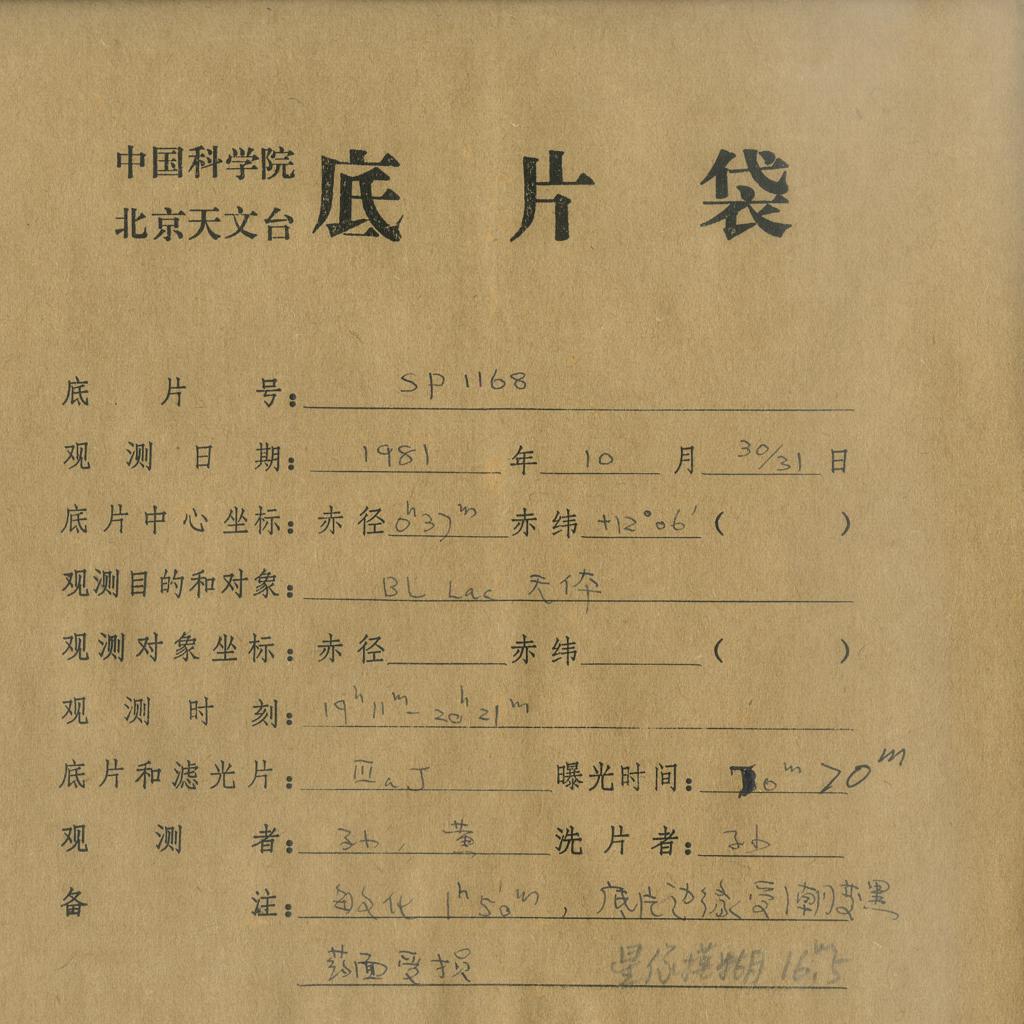 中国科学院
北京天文台
底片袋
底片号： SP 1168
观测日期： 1981 年 10 月 30/31 日
底片中心坐标：赤径 0ʰ37ᵐ 赤纬 +12°06′ （ ）
观测目的和对象： BL Lac 天体
观测对象坐标：赤径 赤纬 （ ）
观测时刻： 19ʰ11ᵐ - 20ʰ21ᵐ
底片和滤光片： IIIaJ 曝光时间： 70ᵐ
观测者： 孙 黄 洗片者： 孙
备注： 敏化 1ʰ50ᵐ，底片边缘受潮变黑
药面受损 星像模糊 16ᵐ.5